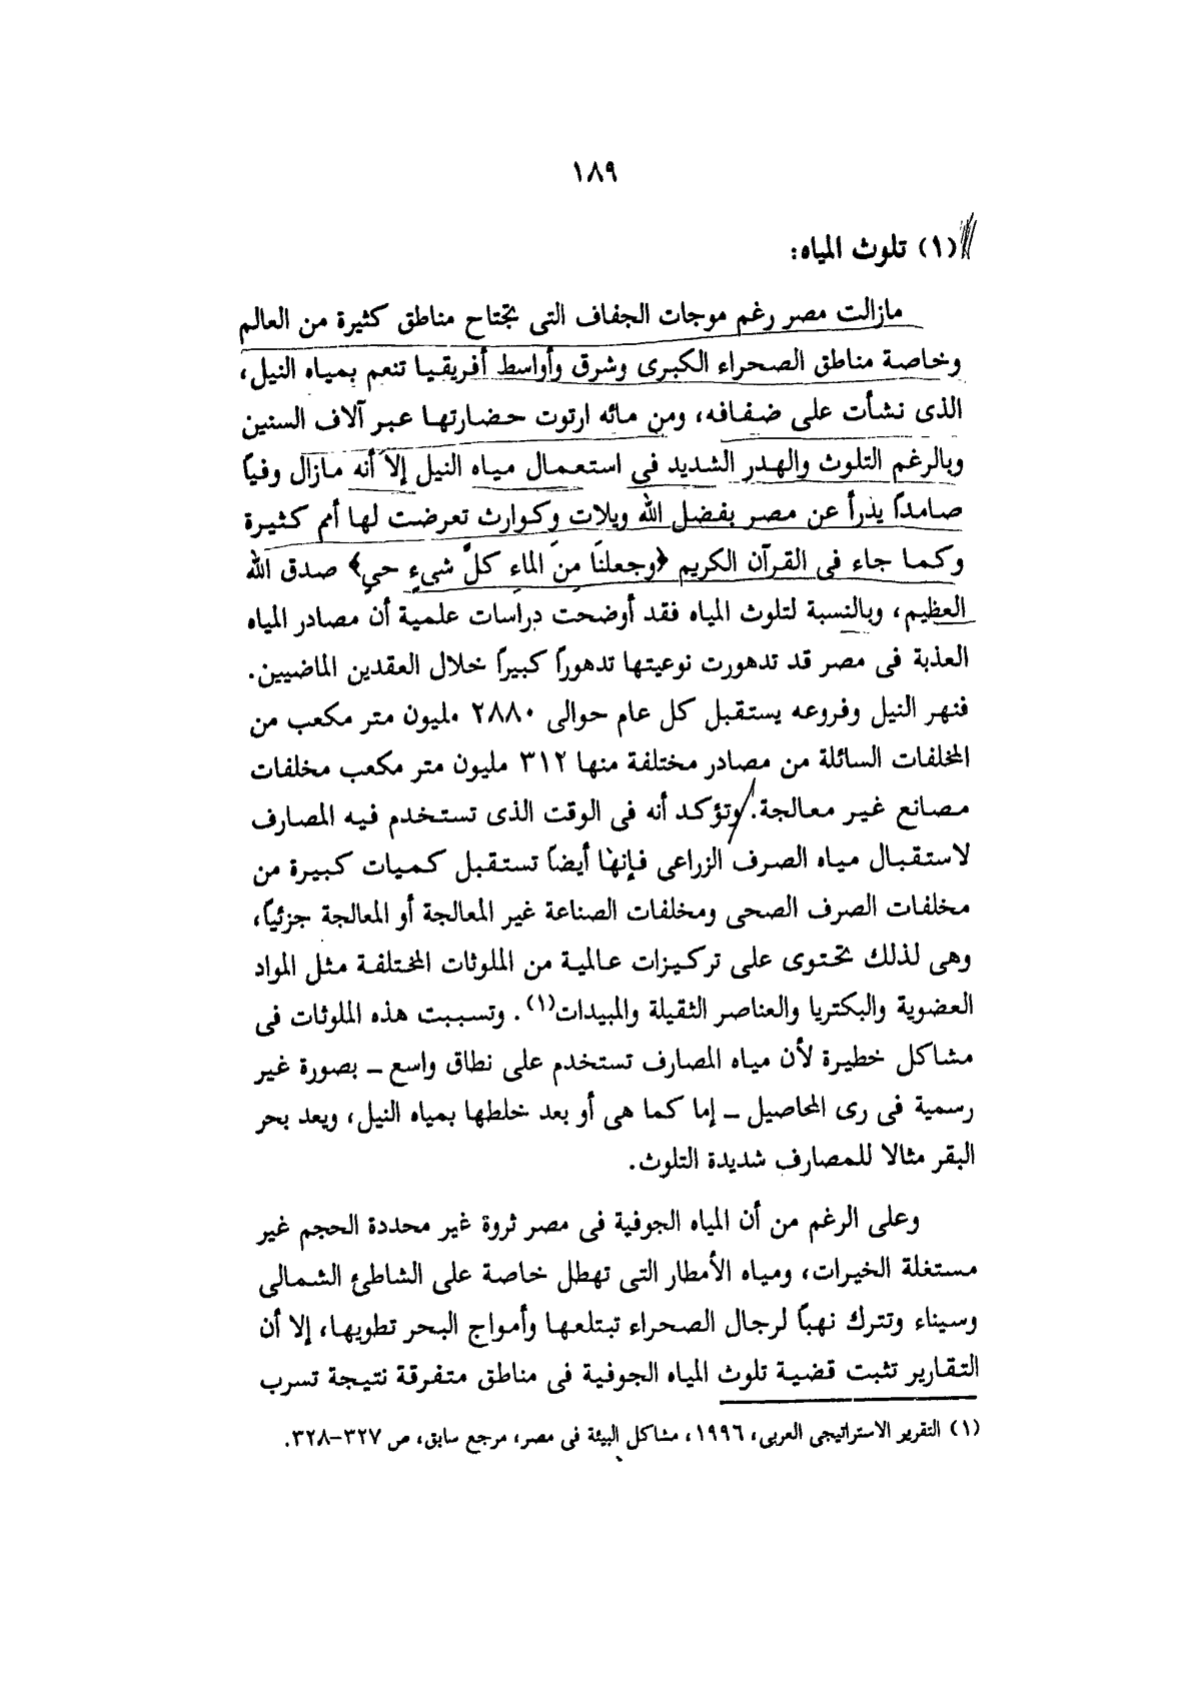 ١٨٩
(١) تلوث المياه:
مازالت مصر رغم موجات الجفاف التى تجتاح مناطق كثيرة من العالم
وخاصة مناطق الصحراء الكبرى وشرق وأواسط أفريقيا تنعم بمياه النيل،
الذى نشأت على ضفافه، ومن مائه ارتوت حضارتها عبر آلاف السنين
وبالرغم التلوث والهدر الشديد فى استعمال مياه النيل إلا أنه مازال وفياً
صامداً يذرأ عن مصر بفضل الله ويلات وكوارث تعرضت لها أمم كثيرة
وكما جاء فى القرآن الكريم ﴿وجعلنَا مِنَ الماءِ كلَّ شىءٍ حىٍ﴾ صدق الله
العظيم، وبالنسبة لتلوث المياه فقد أوضحت دراسات علمية أن مصادر المياه
العذبة فى مصر قد تدهورت نوعيتها تدهوراً كبيراً خلال العقدين الماضيين.
فنهر النيل وفروعه يستقبل كل عام حوالى ٢٨٨٠ مليون متر مكعب من
المخلفات السائلة من مصادر مختلفة منها ٣١٢ مليون متر مكعب مخلفات
مصانع غير معالجة. وتؤكد أنه فى الوقت الذى تستخدم فيه المصارف
لاستقبال مياه الصرف الزراعى فإنها أيضاً تستقبل كميات كبيرة من
مخلفات الصرف الصحى ومخلفات الصناعة غير المعالجة أو المعالجة جزئياً،
وهى لذلك تحتوى على تركيزات عالمية من الملوثات المختلفة مثل المواد
العضوية والبكتريا والعناصر الثقيلة والمبيدات(١). وتسببت هذه الملوثات فى
مشاكل خطيرة لأن مياه المصارف تستخدم على نطاق واسع ــ بصورة غير
رسمية فى رى المحاصيل ــ إما كما هى أو بعد خلطها بمياه النيل، ويعد بحر
البقر مثالا للمصارف شديدة التلوث.
وعلى الرغم من أن المياه الجوفية فى مصر ثروة غير محددة الحجم غير
مستغلة الخيرات، ومياه الأمطار التى تهطل خاصة على الشاطئ الشمالى
وسيناء وتترك نهباً لرجال الصحراء تبتلعها وأمواج البحر تطويها، إلا أن
التقارير تثبت قضية تلوث المياه الجوفية فى مناطق متفرقة نتيجة تسرب
(١) التقرير الاستراتيجى العربى، ١٩٩٦، مشاكل البيئة فى مصر، مرجع سابق، ص ٣٢٧-٣٢٨.